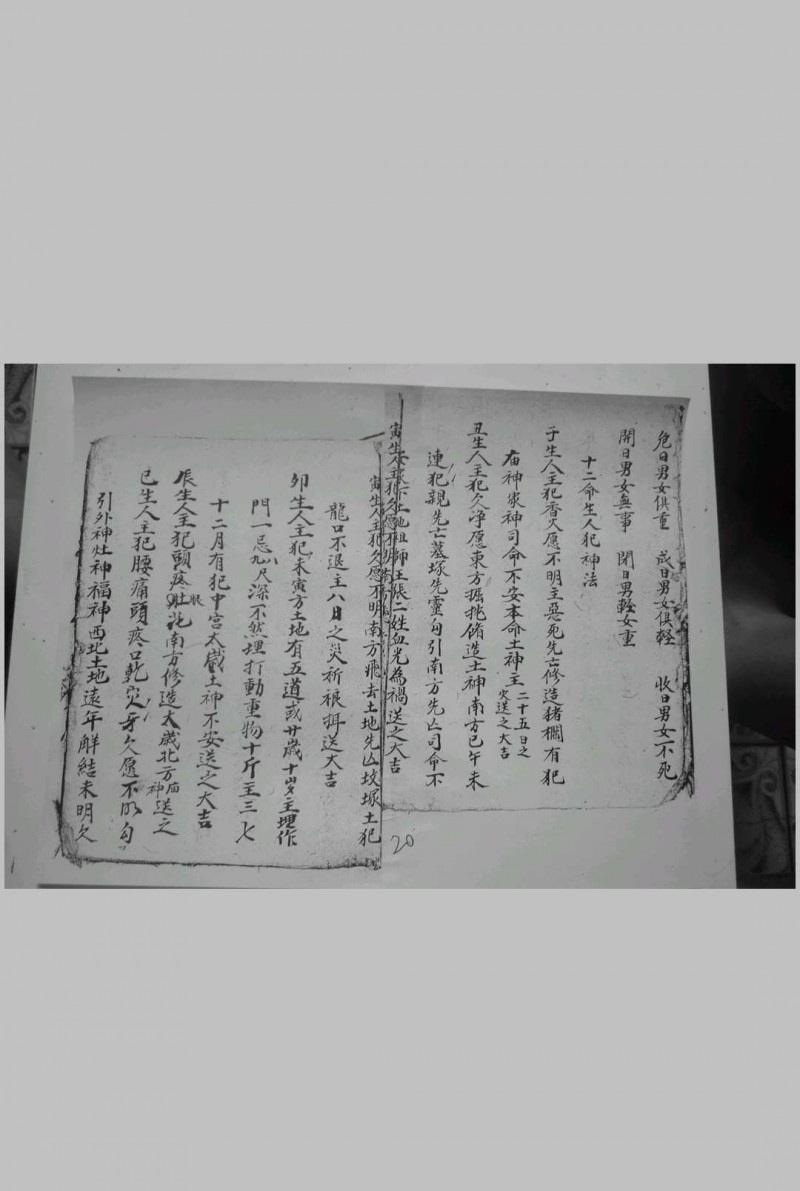 危日男女俱重 成日男女俱輕 收日男女不死
開日男女無事 閉日男輕女重
十二命生人犯神法
子生人主犯香火愿不明主惡死先亡修造猪欄有犯
庙神家神司命不安本命土神主二十五日之
災送之大吉
丑生人主犯久净愿東方掘挖俻造土神南方巳午未
連犯親先亡墓塚先靈勾引南方先亡司命不
安土地祖師王張二姓血光為禍送之大吉
寅生人主犯久愿不明南方飛去土地先亡坟塚土犯
龍口不退主八日之災祈禳拜送大吉
卯生人主犯未寅方土地有五道或廿歲十岁主埋作
門一忌九尺深不然埋打動重物十斤主三七
十二月有犯中宮太歲土神不安送之大吉
辰生人主犯頭疼肚 南方修造太歲北方庙神送之
巳生人主犯腰痛頭疼口乾 牙久愿不明勾
引外神灶神福神西北土地遠年觧結未明欠
20